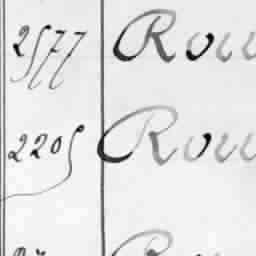 2577 Rou
2205 Rou